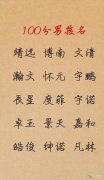 100分男孩名
靖远 博南 文清
瀚文 怀元 宇鹏
辰星 度菲 宇诺
卓玉 景天 嘉和
皓俊 绅诺 凡林